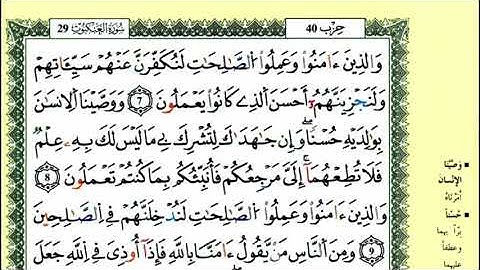 حِزْب 40
سُورَةُ العَنكَبُوتِ 29
وَالذِينَ ءَامَنُوا وَعَمِلُوا الصَّٰلِحَٰتِ لَنُكَفِّرَنَّ عَنْهُمْ سَيِّـَٔاتِهِمْ
وَلَنَجْزِيَنَّهُمُۥٓ أَحْسَنَ الذِے كَانُوا يَعْمَلُونَ 7 وَوَصَّيْنَا اَلِانسَٰنَ
بِوَٰلِدَيْهِ حُسْنًا وَإِن جَٰهَدَٰكَ لِتُشْرِكَ بِے مَا لَيْسَ لَكَ بِهِۦ عِلْمٌ
فَلَا تُطِعْهُمَآ إِلَيَّ مَرْجِعُكُمْ فَأُنَبِّئُكُم بِمَا كُنتُمْ تَعْمَلُونَ 8
وَالذِينَ ءَامَنُوا وَعَمِلُوا الصَّٰلِحَٰتِ لَنُدْخِلَنَّهُمْ فِے الصَّٰلِحِينَ 9
وَمِنَ النَّاسِ مَنْ يَّقُولُ ءَامَنَّا بِاللَّهِ فَإِذَآ أُوذِيَ فِے اللَّهِ جَعَلَ
وَصَّيْنَا
الإنْسان
أمَرْنَاهُ
حُسْناً
بِرّاً بهما
وعطفاً
عليهما